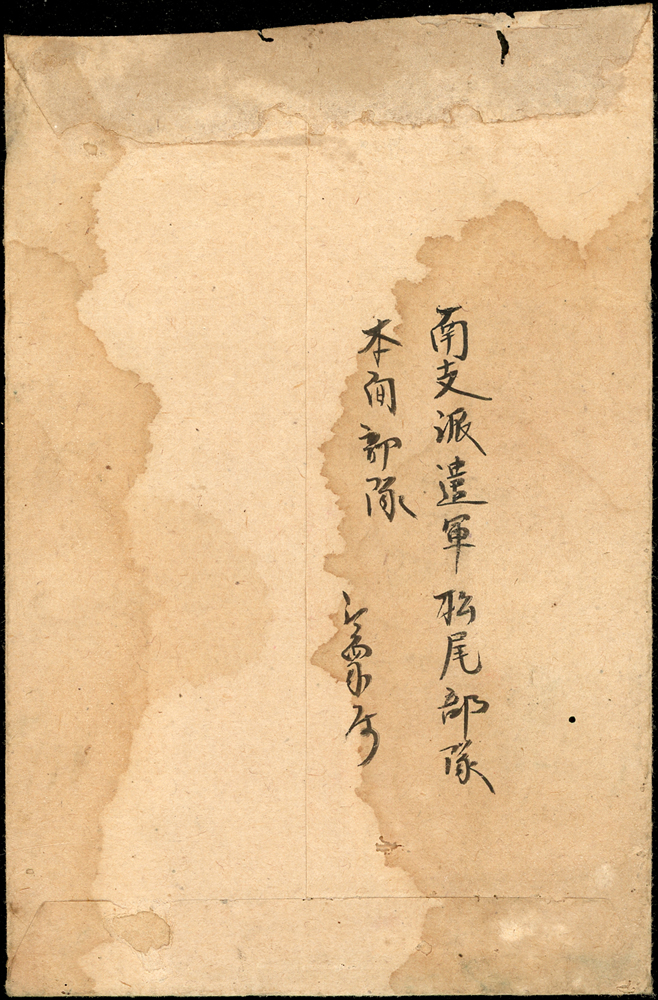 南支派遣軍松尾部隊
本间部隊